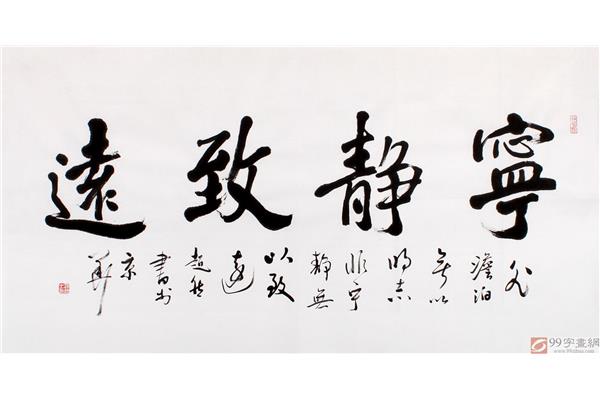 寧静致遠
非
澹泊
無以
明志
非寧
靜無
以致
遠
超然
書於
京
華
99字畫網